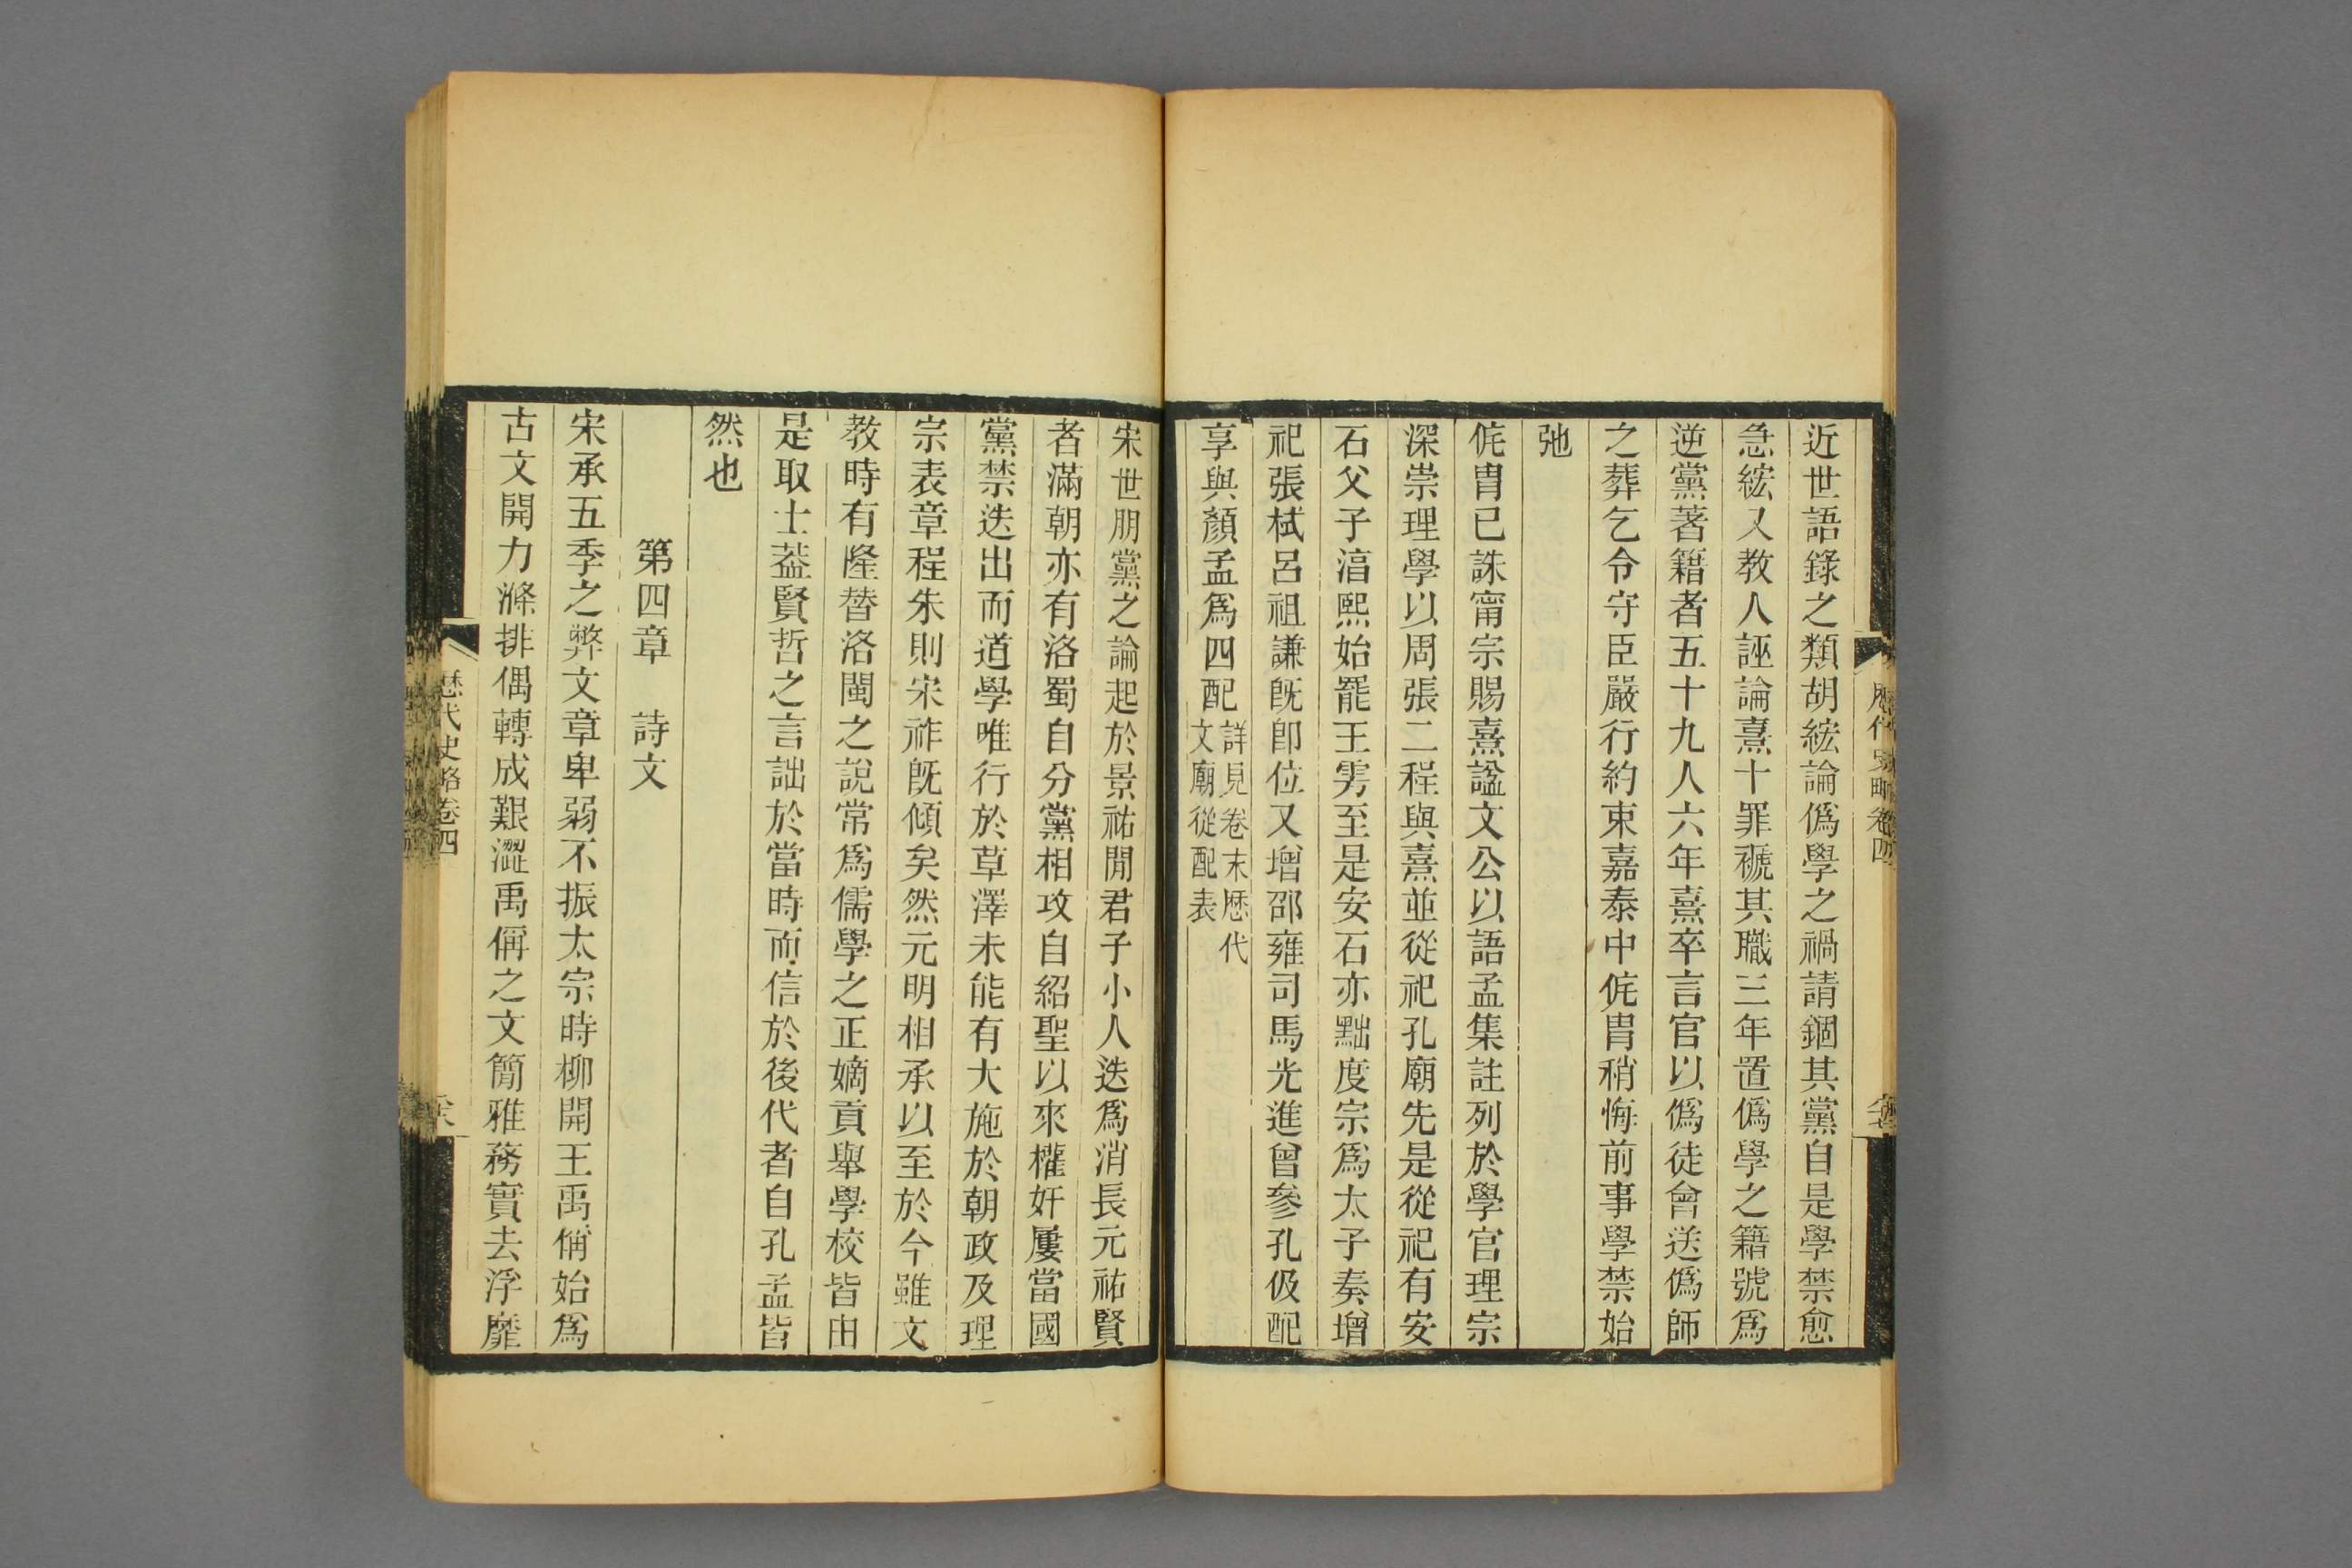 近世語錄之類胡紘論僞學之禍請錮其黨自是學禁愈
急紘又教人誣論熹十罪褫其職三年置僞學之籍號爲
逆黨著籍者五十九人六年熹卒言官以僞徒會送僞師
之葬乞令守臣嚴行約束嘉泰中侂胄稍悔前事學禁始
弛
侂胄已誅甯宗賜熹諡文公以語孟集註列於學官理宗
深崇理學以周張二程與熹並從祀孔廟先是從祀有安
石父子湻熙始罷王雱至是安石亦黜度宗爲太子奏增
祀張栻呂祖謙旣卽位又增邵雍司馬光進曾參孔伋配
享與顏孟爲四配詳見卷末歷代
文廟從配表
宋世朋黨之論起於景祐閒君子小人迭爲消長元祐賢
者滿朝亦有洛蜀自分黨相攻自紹聖以來權奸屢當國
黨禁迭出而道學唯行於草澤未能有大施於朝政及理
宗表章程朱則宋祚旣傾矣然元明相承以至於今雖文
教時有隆替洛閩之說常爲儒學之正嫡貢舉學校皆由
是取士葢賢哲之言詘於當時而信於後代者自孔孟皆
然也
第四章　詩文
宋承五季之弊文章卑弱不振太宗時柳開王禹偁始爲
古文開力滌排偶轉成艱澀禹偁之文簡雅務實去浮靡
歷代史略卷四